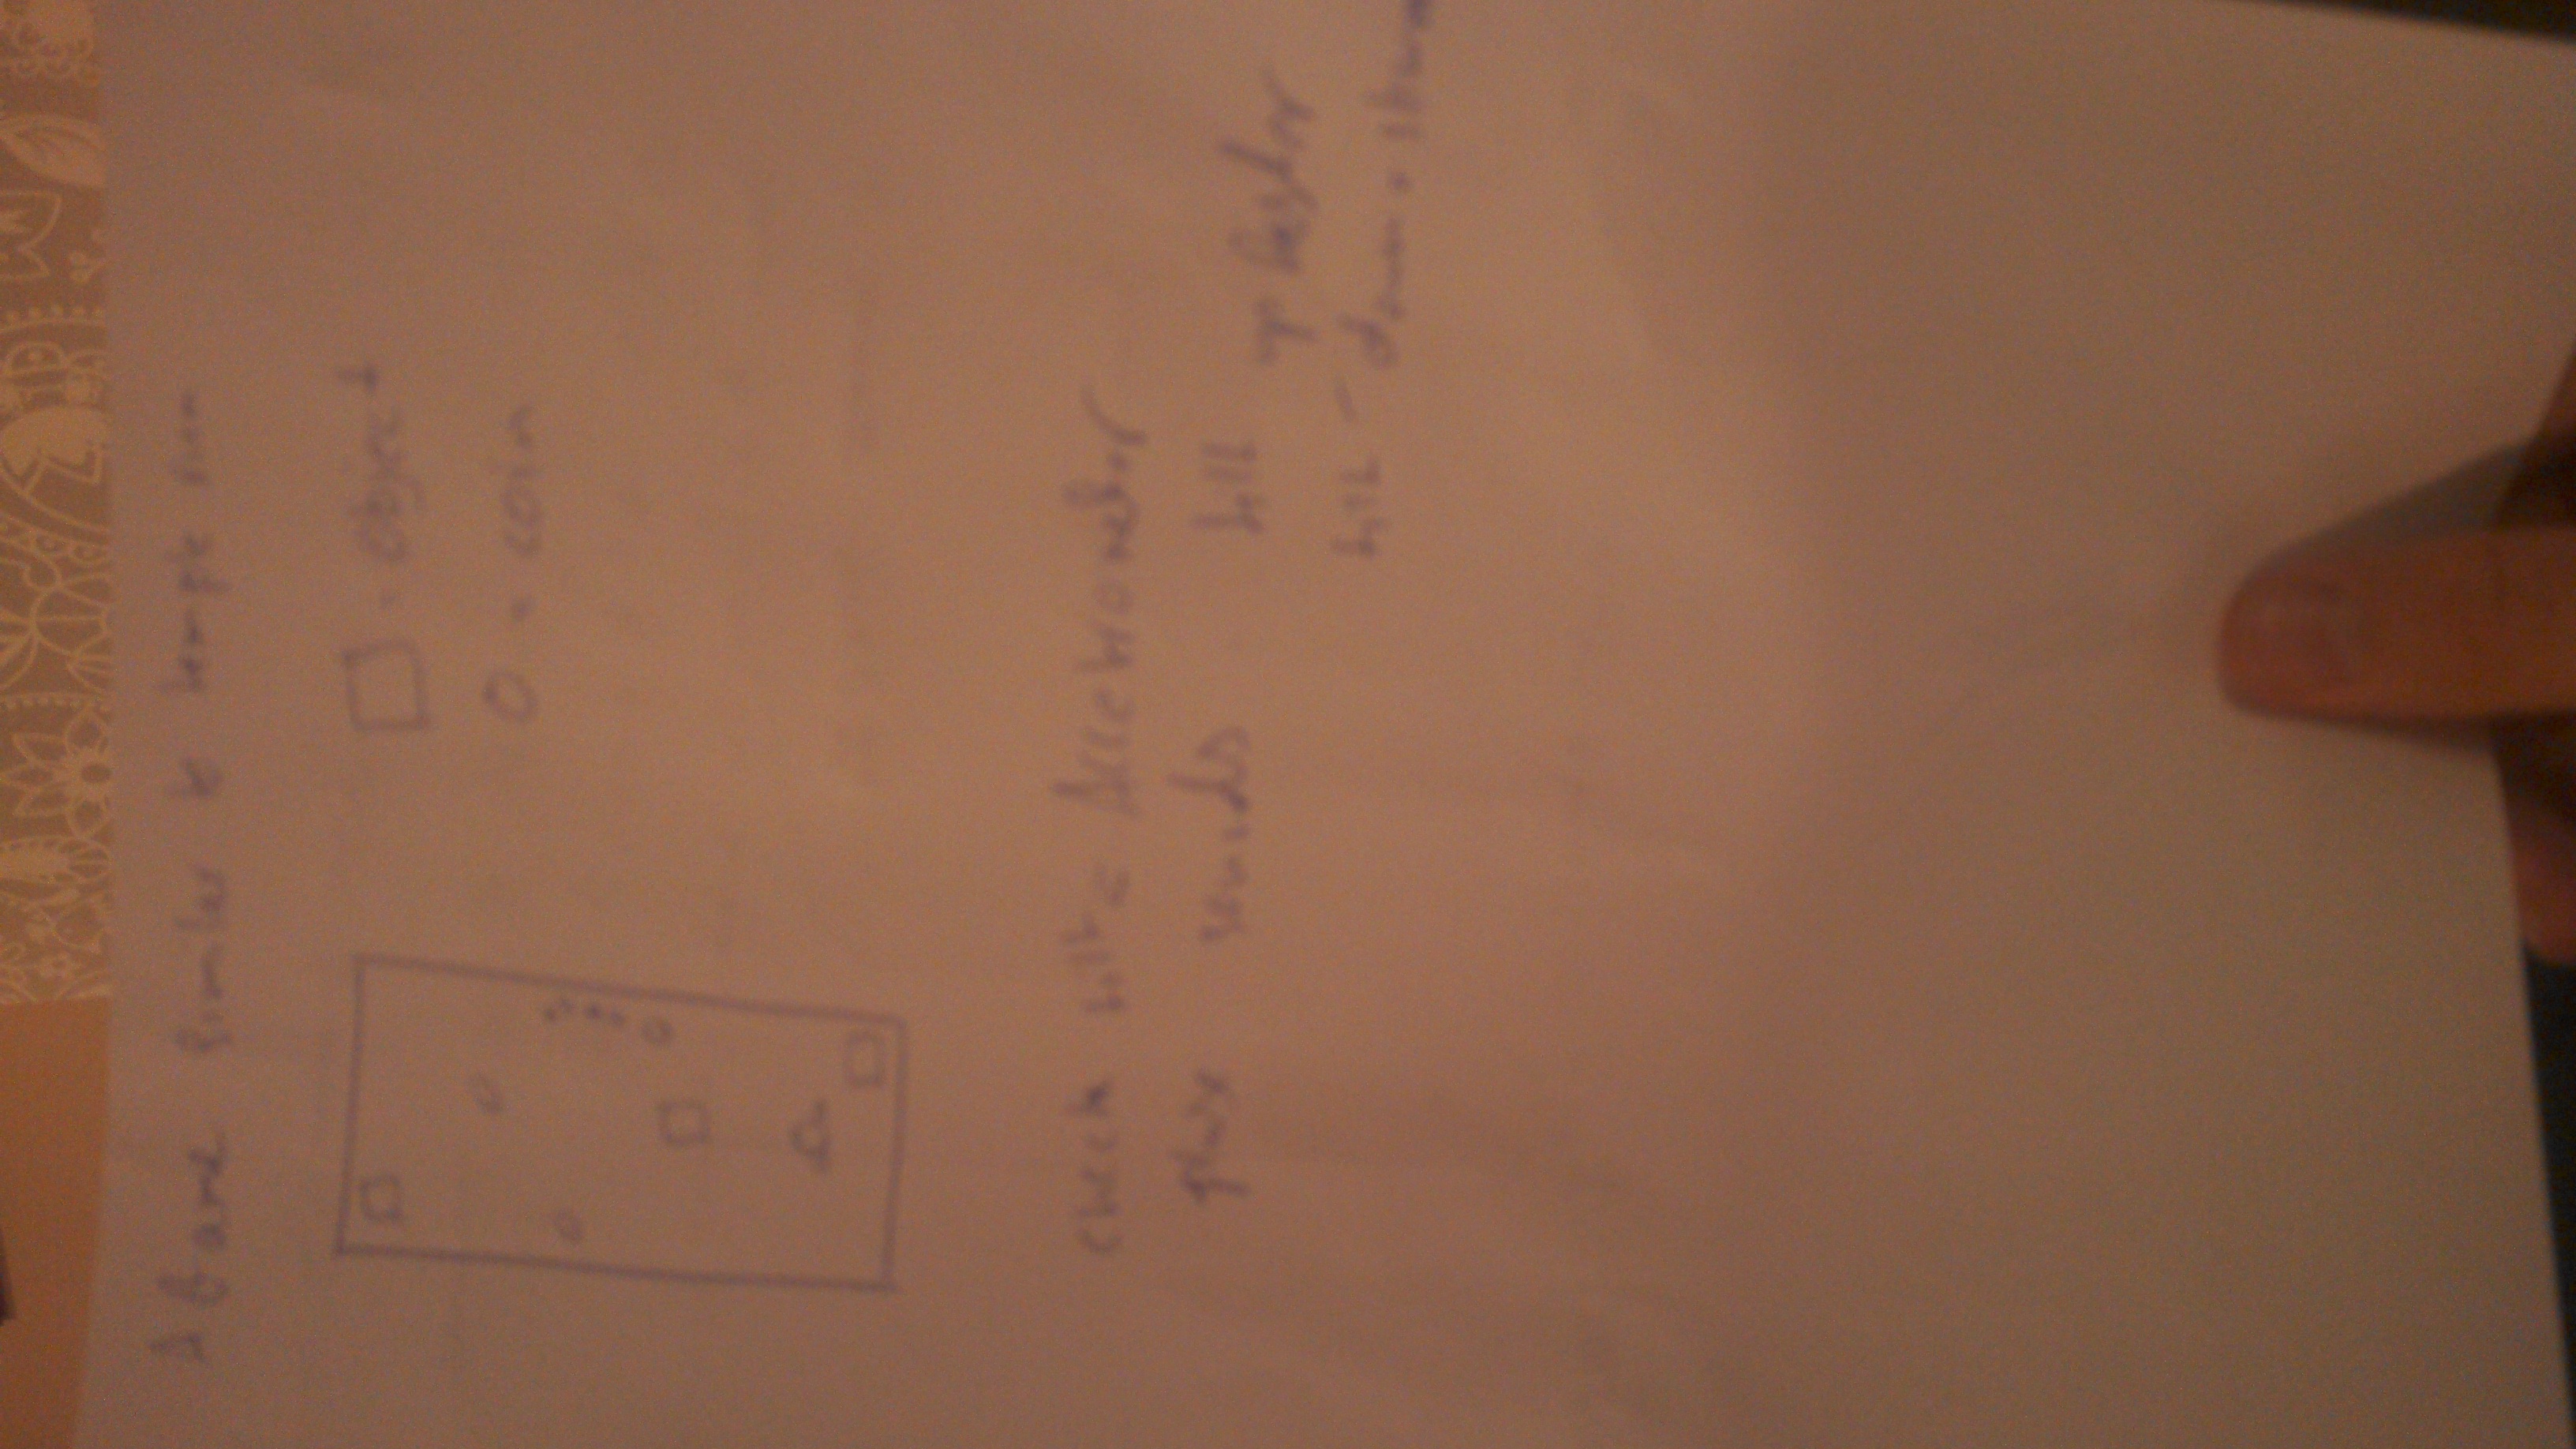 A Game similar to temple run
□ = object
O = coin
check tilt = Accelrometer
sounds tilt up faster
tilt - down =